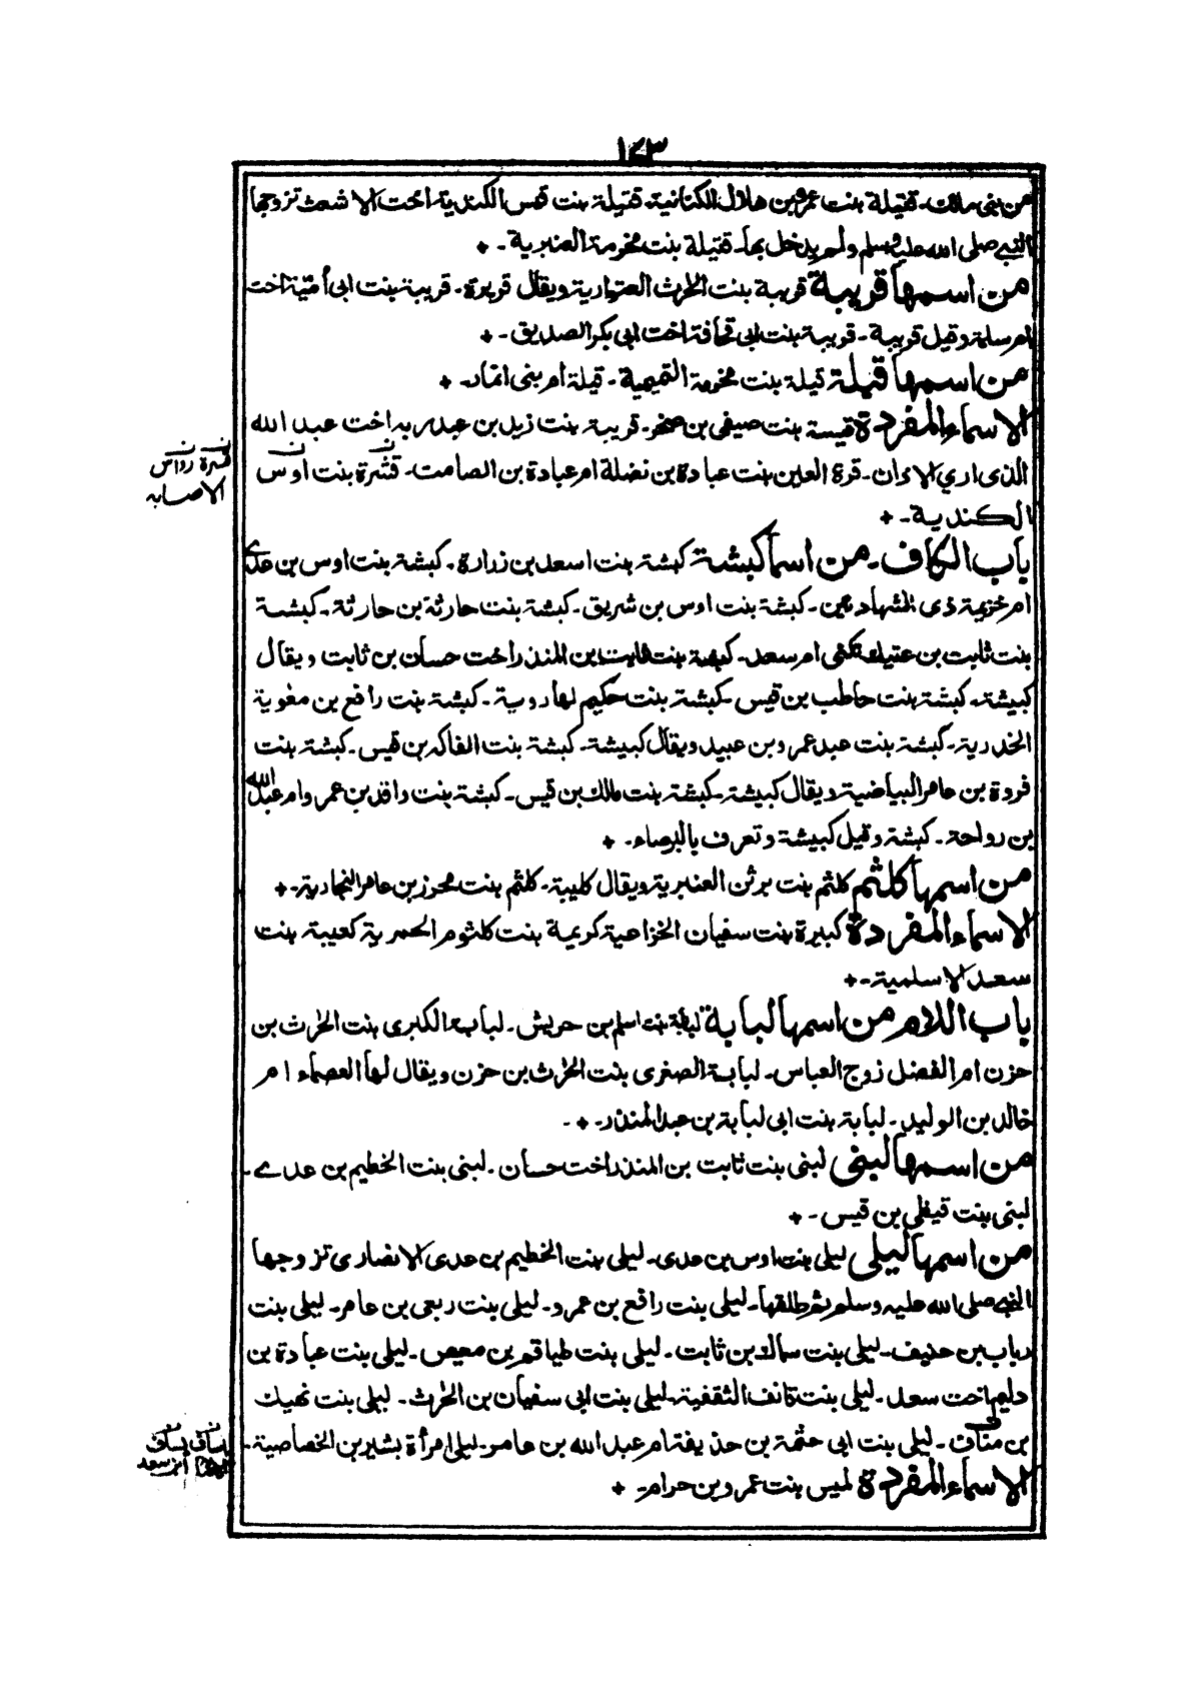 ١٤٣
من بنى مالك - قتيلة بنت عمرو بن هلال الكنانية - قتيلة بنت قيس الكندية اخت الاشعث تزوجها
النبى صلى الله عليه وسلم ولم يدخل بها - قتيلة بنت مخرمة العنبرية -
من اسمها قريبة قريبة بنت الحرث العتوارية ويقال قريرة - قريبة بنت ابى أمية اخت
ام سلمة وقيل قريبة - قريبة بنت ابى قحافة اخت ابى بكر الصديق -
من اسمها قيلة قيلة بنت مخرمة التميمية - قيلة ام بنى انمار -
الاسماء المفردة قيسة بنت صيفى بن صخر - قريبة بنت زيد بن عبد ربه اخت عبد الله
الذى اري الاذان - قرة العين بنت عبادة بن نضلة ام عبادة بن الصامت - قشرة بنت اوس
الكندية -
قسرة رواس
الاصابه
باب الكاف - من اسمها كبشة كبشة بنت اسعد بن زرارة - كبشة بنت اوس بن عدى
ام خزيمة ذى الشهادتين - كبشة بنت اوس بن شريق - كبشة بنت حارثة بن حارثة - كبشة
بنت ثابت بن عتيك تكنى ام سعد - كبشة بنت ثابت بن المنذر اخت حسان بن ثابت ويقال
كبيشة - كبشة بنت حاطب بن قيس - كبشة بنت حكيم لها روية - كبشة بنت رافع بن معوية
الخدرية - كبشة بنت عبد عمرو بن عبيد ويقال كبيشة - كبشة بنت الفاكه بن قيس - كبشة بنت
فروة بن عامر البياضية ويقال كبيشة - كبشة بنت مالك بن قيس - كبشة بنت واقد بن عمرو ام عبد الله
بن رواحة - كبشة وقيل كبيشة وتعرف بالبرصاء -
من اسمها كلثم كلثم بنت برثن العنبرية ويقال كليبة - كلثم بنت محرز بن عامر النجارية -
الاسماء المفردة كبيرة بنت سفيان الخزاعية كريمة بنت كلثوم الحمرية كعيبة بنت
سعد الاسلمية -
باب اللام من اسمها لبابة لبابة بنت اسلم بن حريش - لبابة الكبرى بنت الحرث بن
حزن ام الفضل زوج العباس - لبابة الصغرى بنت الحرث بن حزن ويقال لها العصماء ام
خالد بن الوليد - لبابة بنت ابى لبابة بن عبد المنذر -
من اسمها لبنى لبنى بنت ثابت بن المنذر اخت حسان - لبنى بنت الخطيم بن عدى -
لبنى بنت قيظى بن قيس -
من اسمها ليلى ليلى بنت اوس بن عدى - ليلى بنت الخطيم بن عدى الانصارى تزوجها
النبى صلى الله عليه وسلم ثم طلقها - ليلى بنت رافع بن عمرو - ليلى بنت ربعى بن عامر - ليلى بنت
رباب بن حنيف - ليلى بنت سماك بن ثابت - ليلى بنت بن معيص - ليلى بنت عبادة بن
دليم اخت سعد - ليلى بنت قانف الثقفية - ليلى بنت ابى سفيان بن الحرث - ليلى بنت نهيك
بن مناف - ليلى بنت ابى حثمة بن حذيفة ام عبد الله بن عامر - ليلى امرأة بشير بن الخصاصية -
يساف
ابن سعد
الاسماء المفردة لميس بنت عمرو بن حرام -